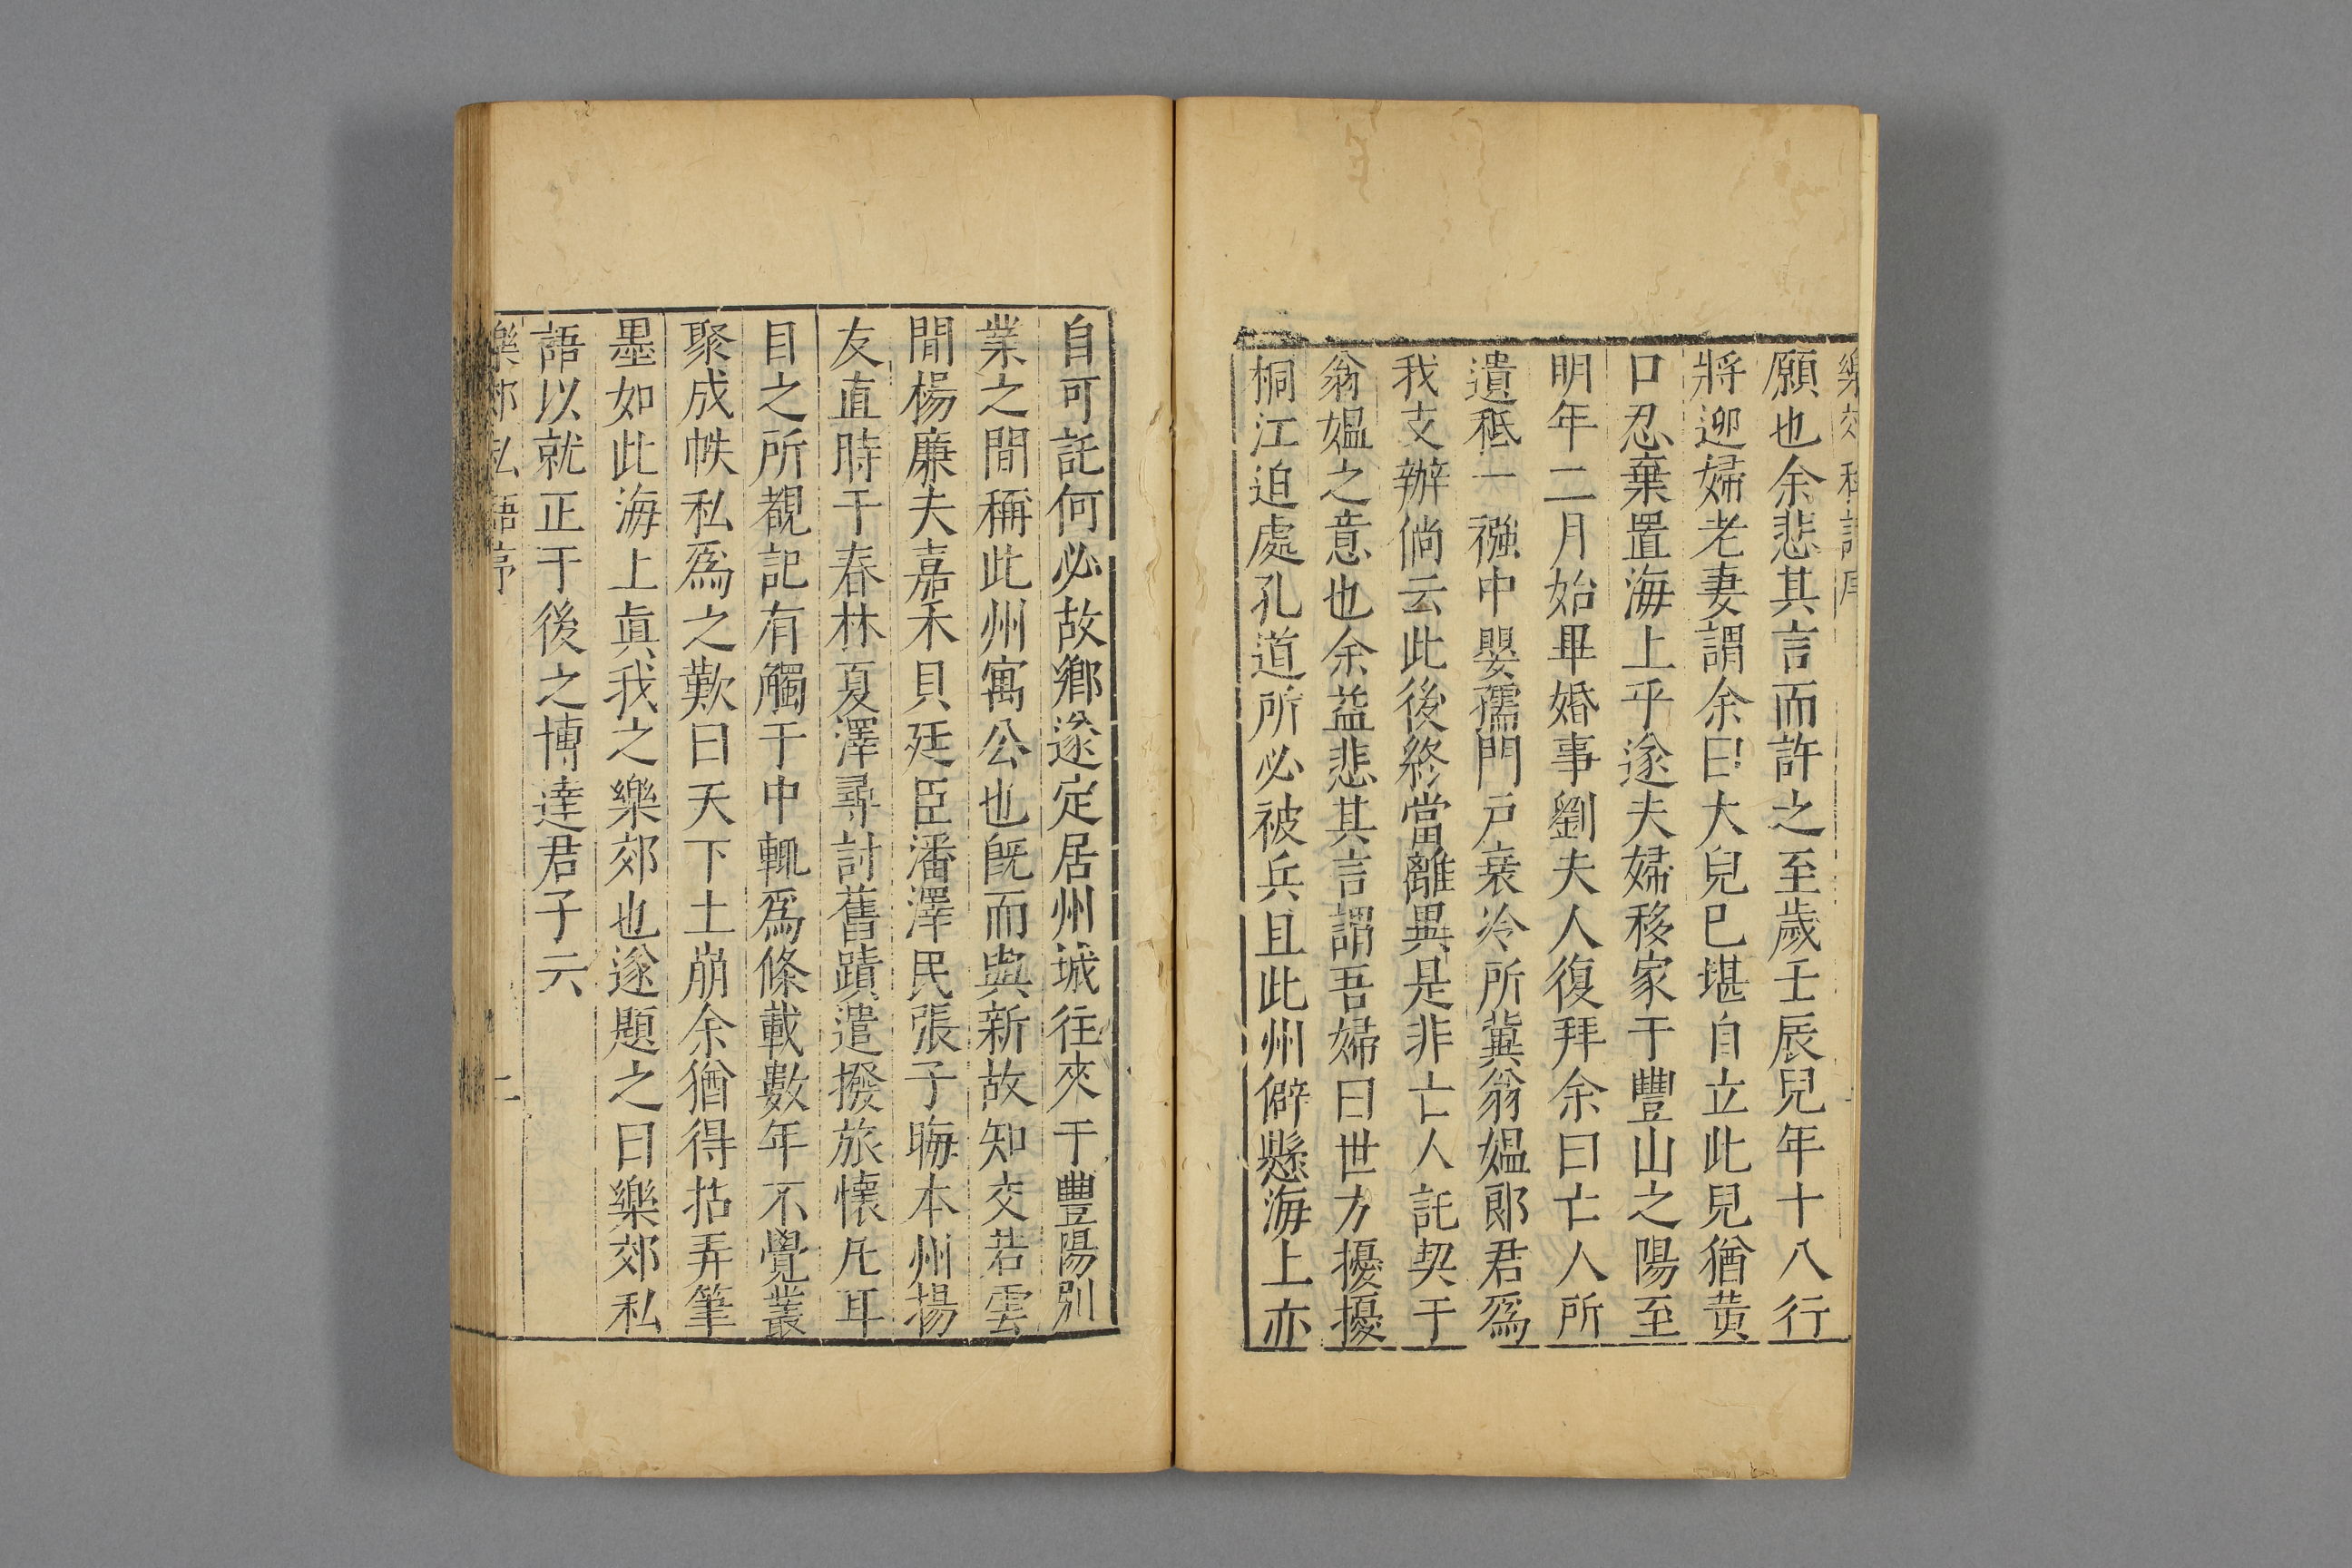 樂郊私語序
願也余悲其言而許之至歲壬辰兒年十八行
將迎婦老妻謂余曰大兒巳堪自立此兒猶黃
口忍棄置海上乎遂夫婦移家于豐山之陽至
明年二月始畢婚事劉夫人復拜余曰亡人所
遺秪一襁中嬰孺門戸衰冷所兾翁媼郎君爲
我支辦倘云此後終當離異是非亡人託契于
翁媼之意也余益悲其言謂吾婦曰世方擾擾
桐江迫處孔道所必被兵且此州僻懸海上亦
自可託何必故鄉遂定居州城往來于豐陽別
業之間稱此州寓公也旣而與新故知交若雲
間楊廉夫嘉禾貝廷臣潘澤民張子晦本州楊
友直時于春林夏澤尋討舊蹟遣撥旅懷凡耳
目之所覩記有觸于中輒爲條載數年不覺叢
聚成帙私爲之歎曰天下土崩余猶得拈弄筆
墨如此海上眞我之樂郊也遂題之曰樂郊私
語以就正于後之博達君子云
樂郊私語序
二